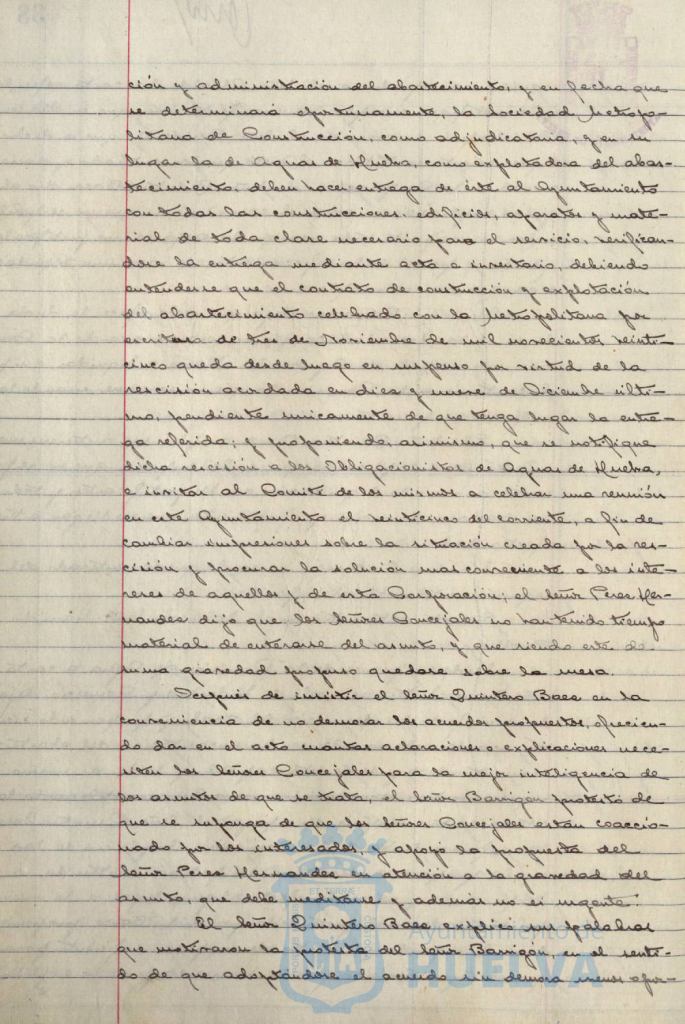 ción y administración del abastecimiento, y en fecha que
se determinará oportunamente, la Sociedad Metropo-
litana de Construcción, como adjudicataria, y en su
lugar la de Aguas de Huelva, como explotadora del abas-
tecimiento, deben hacer entrega de éste al Ayuntamiento
con todas las construcciones, edificios, aparatos y mate-
rial de toda clase necesario para el servicio, verifican-
dose la entrega mediante acta e inventario, debiendo
entenderse que el contrato de construcción y explotación
del abastecimiento celebrado con la Metropolitana por
escritura de tres de Noviembre de mil novecientos veinti-
cinco queda desde luego en suspenso por virtud de la
rescisión acordada en diez y nueve de Diciembre últi-
mo, pendiente unicamente de que tenga lugar la entre-
ga referida; y proponiendo, asimismo, que se notifique
dicha rescisión a los Obligacionistas de Aguas de Huelva,
e invitar al Comité de los mismos a celebrar una reunión
en este Ayuntamiento el veinticinco del corriente, a fin de
cambiar impresiones sobre la situación creada por la res-
cisión y procurar la solución mas conveniente a los inte-
reses de aquellos y de esta Corporación; el Señor Perez Her-
nandez dijo que los Señores Concejales no han tenido tiempo
material de enterarse del asunto, y que siendo este de
suma gravedad propuso quedase sobre la mesa.
Después de insistir el Señor Quintero Baez en la
conveniencia de no demorar los acuerdos propuestos, ofrecien-
do dar en el acto cuantas aclaraciones o explicaciones nece-
siten los Señores Concejales para la mejor inteligencia de
los asuntos de que se trata, el Señor Barrigón protestó de
que se suponga de que los Señores Concejales están coaccio-
nado por los interesados, y apoyó la propuesta del
Señor Perez Hernandez en atención a la gravedad del
asunto, que debe meditarse y además no es urgente.
El Señor Quintero Baez explicó sus palabras
que motivaron la protesta del Señor Barrigón, en el senti-
do de que adoptándose el acuerdo sin demora menos opor-
Ayuntamiento de
HUELVA